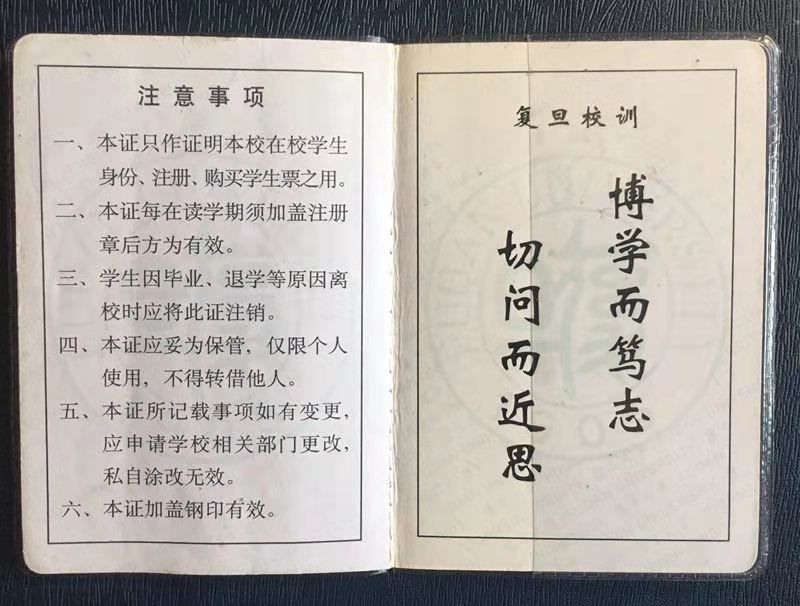 注意事项
一、本证只作证明本校在校学生
身份、注册、购买学生票之用。
二、本证每在读学期须加盖注册
章后方为有效。
三、学生因毕业、退学等原因离
校时应将此证注销。
四、本证应妥为保管，仅限个人
使用，不得转借他人。
五、本证所记载事项如有变更，
应申请学校相关部门更改，
私自涂改无效。
六、本证加盖钢印有效。
复旦校训
博学而笃志
切问而近思